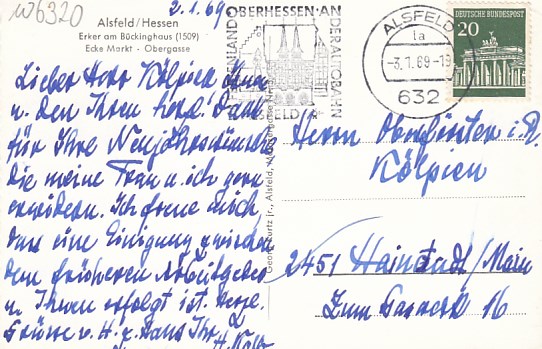 W6320
2.1.69
Alsfeld/Hessen
Erker am Bückinghaus (1509)
Ecke Markt - Obergasse
Lieber Herr Kölpien, Ihnen
u. den Ihren herzl. Dank
für Ihre Neujahrswünsche
die meine Frau u. ich gern
erwidern. Ich freue mich,
dass eine Einigung zwischen
dem früheren Arbeitgeber
u. Ihnen erfolgt ist. Herzl.
Grüsse v. H. z. Haus Ihr
OBERHESSEN·AN
DER AUTOBAHN
ALSFELD
Georg Kurtz jr., Alsfeld,
ALSFELD
1a
-3.1.69-19
632
DEUTSCHE BUNDESPOST
20
Herrn Oberförster i. R.
Kölpien
2451 Hainstadt/Main
Zum 16